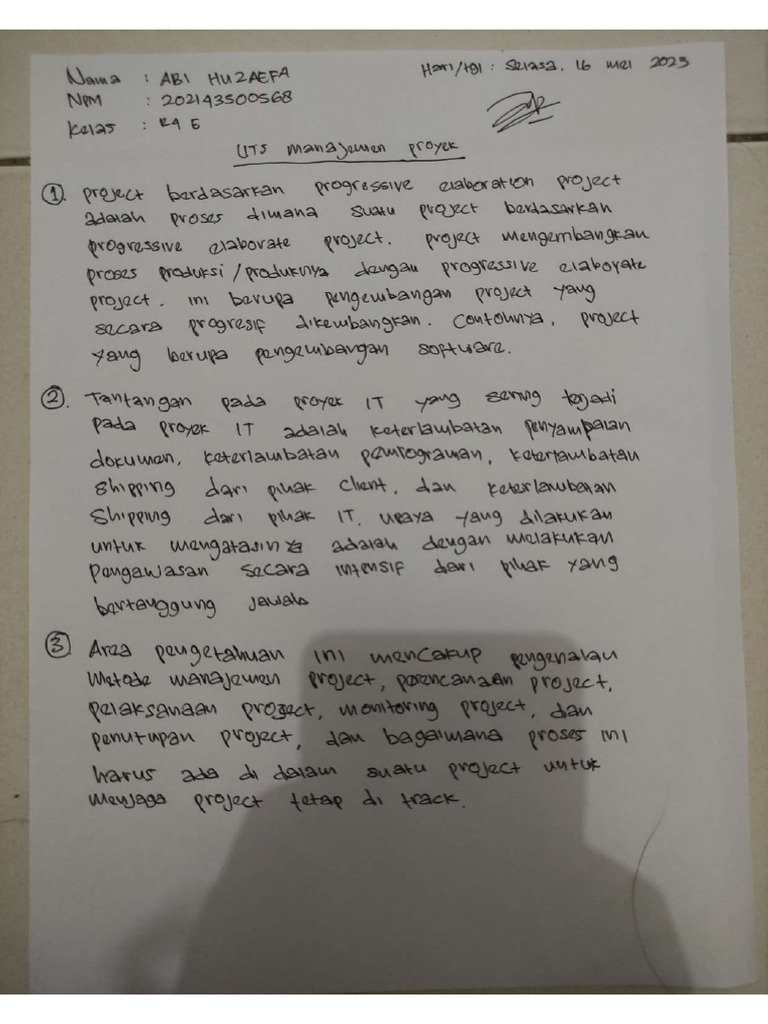 Nama : ABI HUZAEFA
NPM : 202143500568
Kelas : R4 E
Hari/tgl : Selasa, 16 Mei 2023
UTS Manajemen Proyek
1. Project berdasarkan progressive elaboration project
adalah proses dimana suatu project berdasarkan
progressive elaborate project. project mengembangkan
proses produksi/produknya dengan progressive elaborate
project. ini berupa pengembangan project yang
secara progresif dikembangkan. Contohnya, project
yang berupa pengembangan software.
2. Tantangan pada proyek IT yang sering terjadi
pada proyek IT adalah keterlambatan penyampaian
dokumen, keterlambatan pemrograman, keterlambatan
shipping dari pihak client, dan keterlambatan
shipping dari pihak IT. upaya yang dilakukan
untuk mengatasinya adalah dengan melakukan
pengawasan secara intensif dari pihak yang
bertanggung jawab
3. Area pengetahuan ini mencakup pengenalan
Metode manajemen project, perencanaan project,
pelaksanaan project, monitoring project, dan
penutupan project, dan bagaimana proses ini
harus ada di dalam suatu project untuk
menjaga project tetap di track.